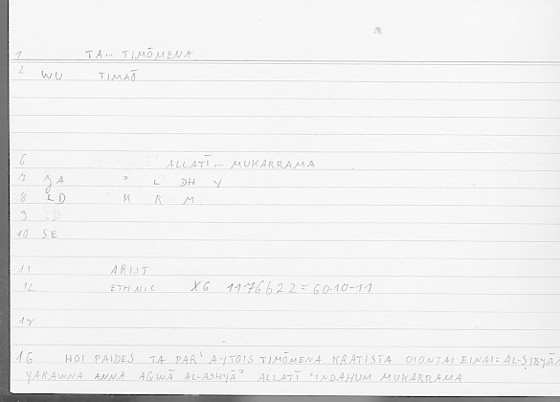 1 TA... TIMŌMENA
2 WU TIMAŌ
6 ALLATĪ... MUKARRAMA
7 JA ʾ L DH Y
8 LD K R M
9 LD
10 SE
11 ARIST
12 ETHNIC XG 1176b22 = 60-10-11
16 HOI PAIDES TA PAR' AYTOIS TIMŌMENA KRATISTA OIONTAI EINAI = AL-ṢIBYĀN
YARAWNA ANNA AQWĀ AL-ASHYĀʾ ALLATĪ ʿINDAHUM MUKARRAMA